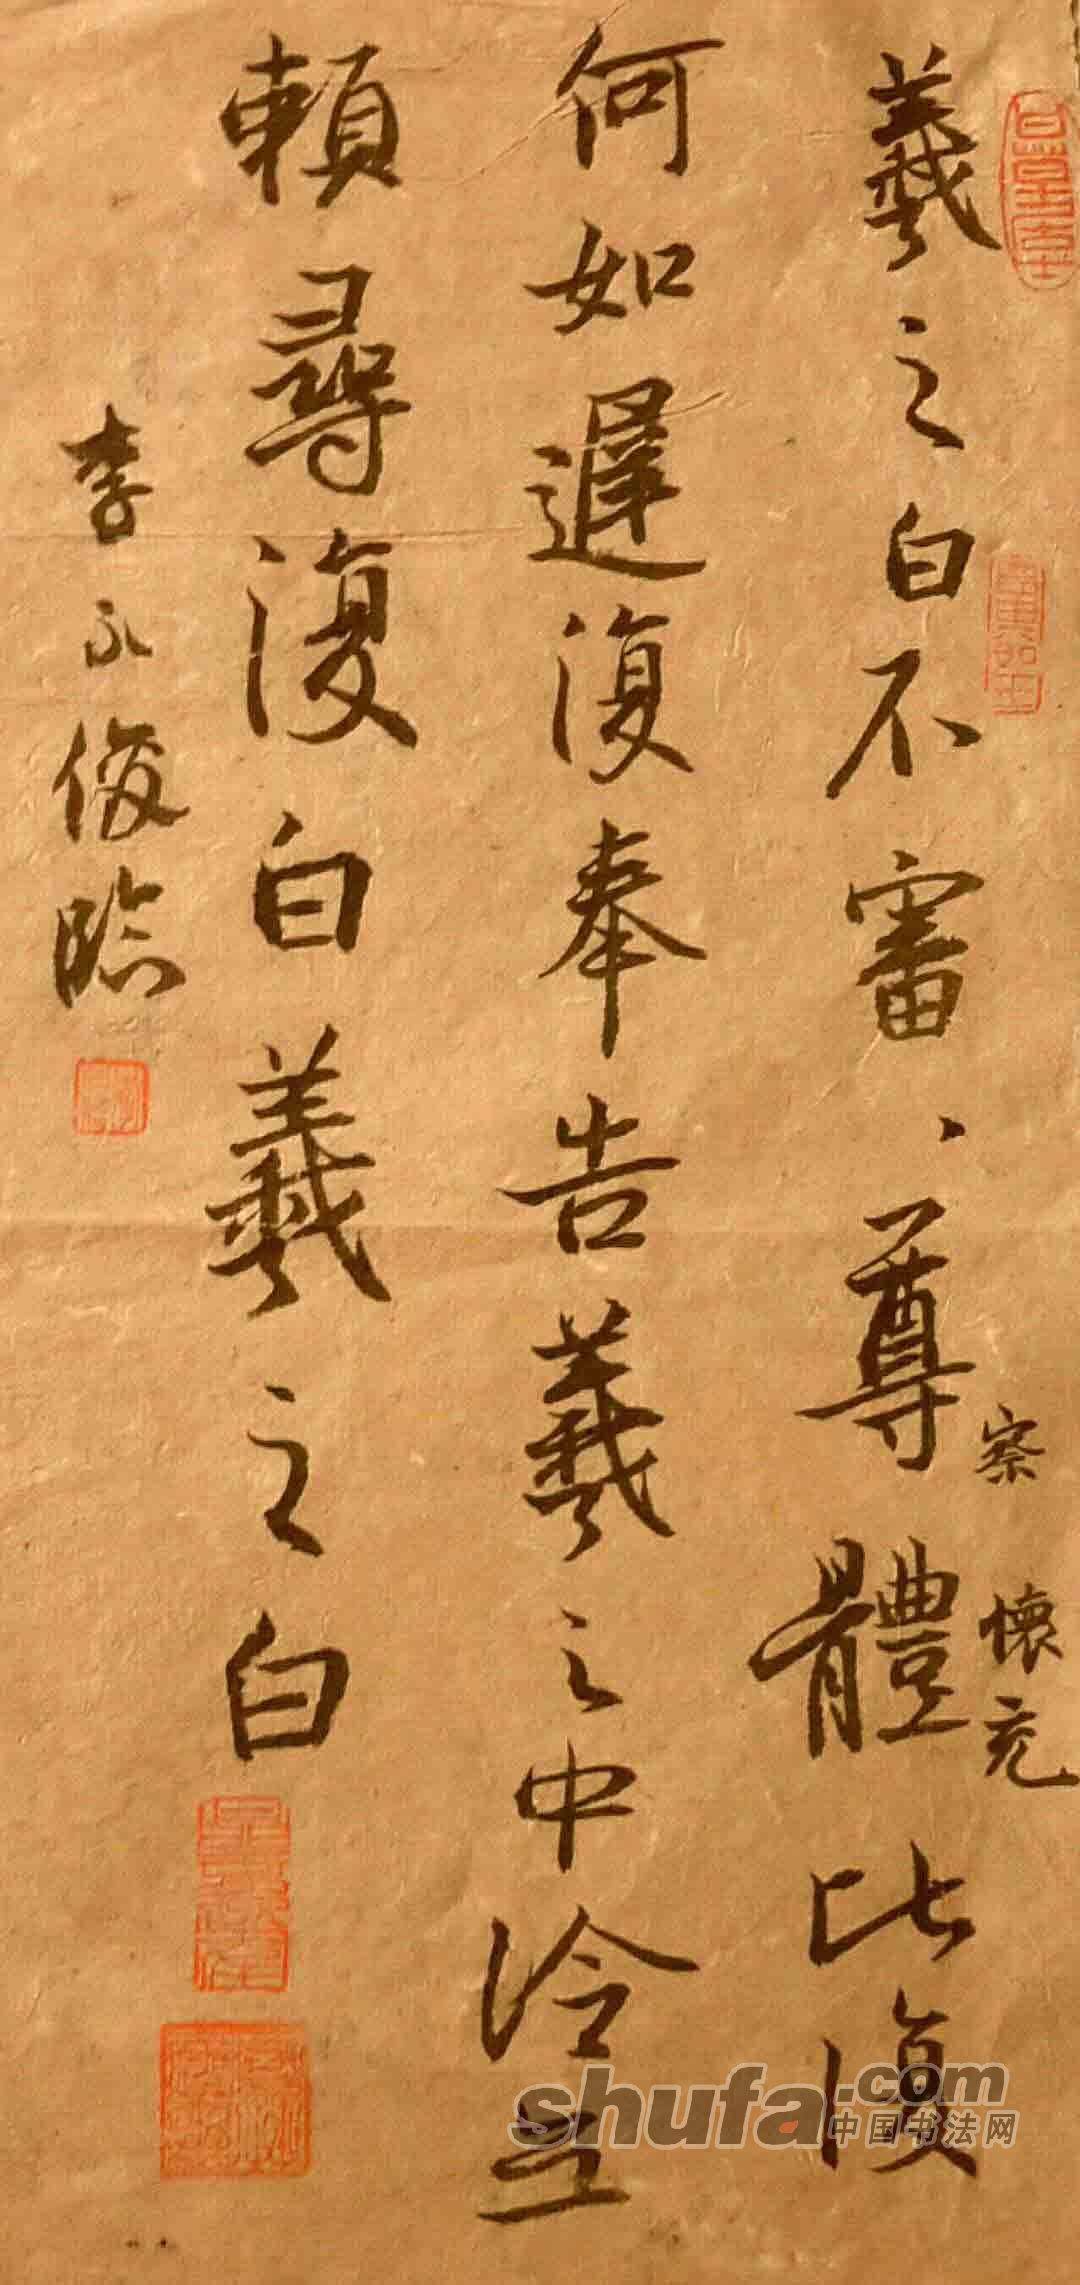 羲之白不審、尊體比復
察
懷充
何如遲復奉告羲之中冷無
賴尋復白羲之白
李永俊臨
shufa.com
中国书法网